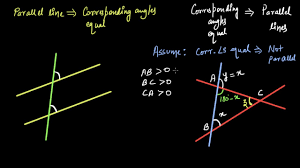 Parallel line ⇒ Corresponding angles equal
Corresponding angles equal ⇒ Parallel lines
Assume: Corr. ∠s equal ⇒ Not parallel
AB > 0
BC > 0
CA > 0
A
y = x
180° - x
C
x
B